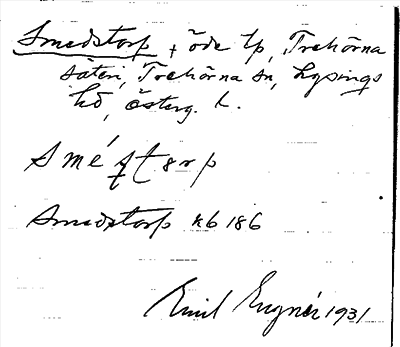 Smedstorp + öde tp, Trehörna
säteri, Trehörna sn, Lysings
hd, österg. l.
Smedstorp kb 186
Emil Eugnér 1931